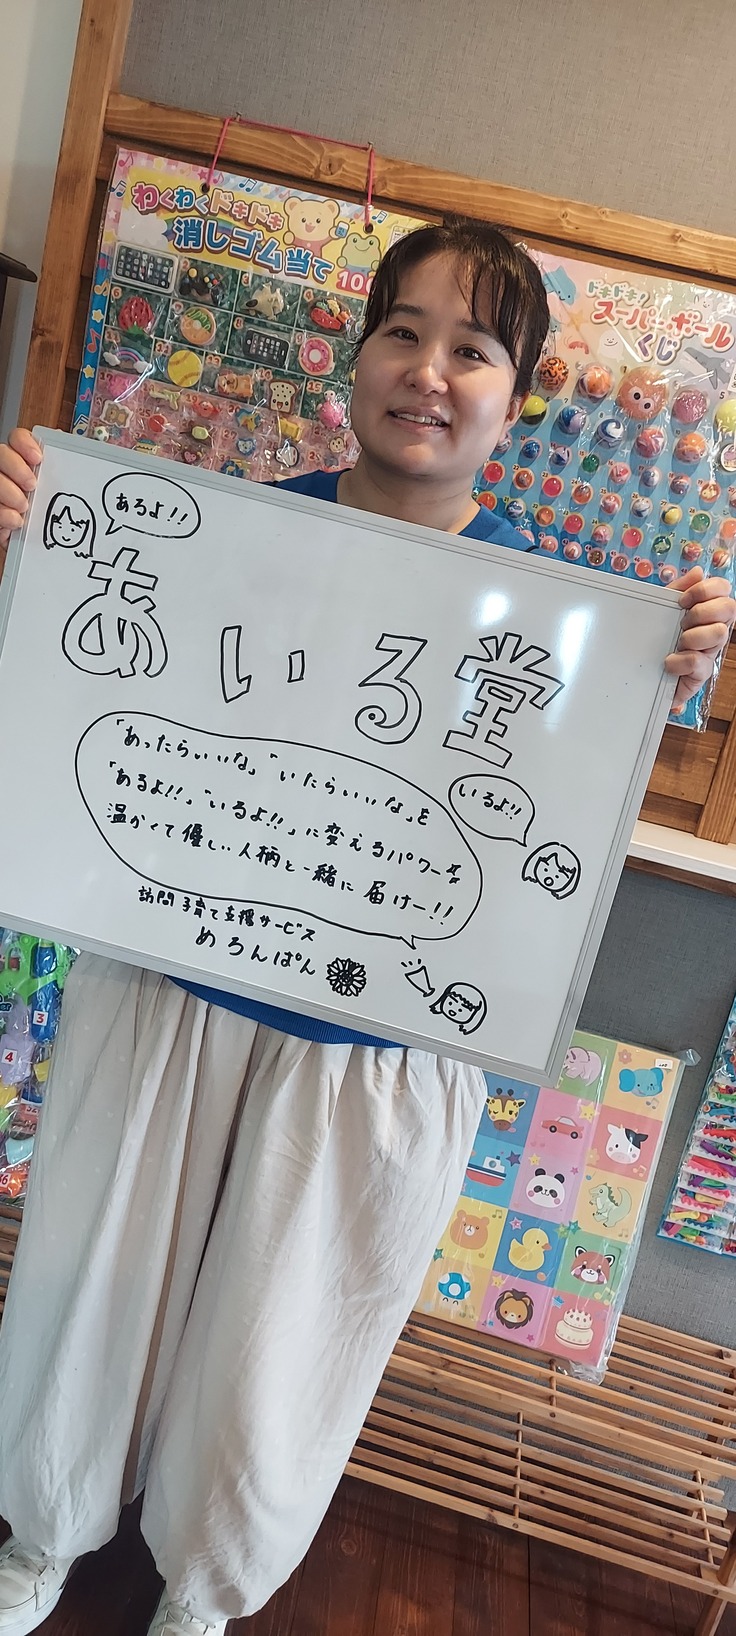 わくわくドキドキ
消しゴム当て
100
ドキドキ!
スーパーボール
くじ
あるよ!!
あいる堂
「あったらいいな」「いたらいいな」を
「あるよ!!」「いるよ!!」に変えるパワーを
温かくて優しい人柄と一緒に届けー!!
いるよ!!
訪問子育て支援サービス
めろんぱん
3
4